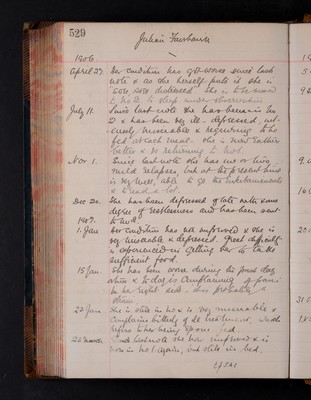 529
Julian Fairbairn
1906
April 27. Her condition has got worse since last
note & as she herself puts it she is
"sore, sore distressed" she is to be moved
to No 2 to sleep under observation
July 11. Since last note she has been in No
2 & has been very ill - depressed,
miserable & requiring to be
fed at each meal. She is now rather
better & is returning to No 1.
Nov 1. Since last note she has had one or two
mild relapses but at the present time
is very well, able to go to the entertainments
& to read a lot.
Dec 20. She has been depressed of late with some
degree of restlessness and has been sent
to No 2.
1907.
1. Jan Her condition has not improved & she is
very miserable & depressed. Great difficulty
is experienced in getting her to take
sufficient food.
15 Jan. She has been worse during the past
& to day is complaining of pain
in her right side. 
22 Jan She is still in No 2 & is very miserable &
complains bitterly of the treatment, which
refers to her being spoon fed.
22 March Since last note she has improved & is
now in No 1 again, but still in bed.